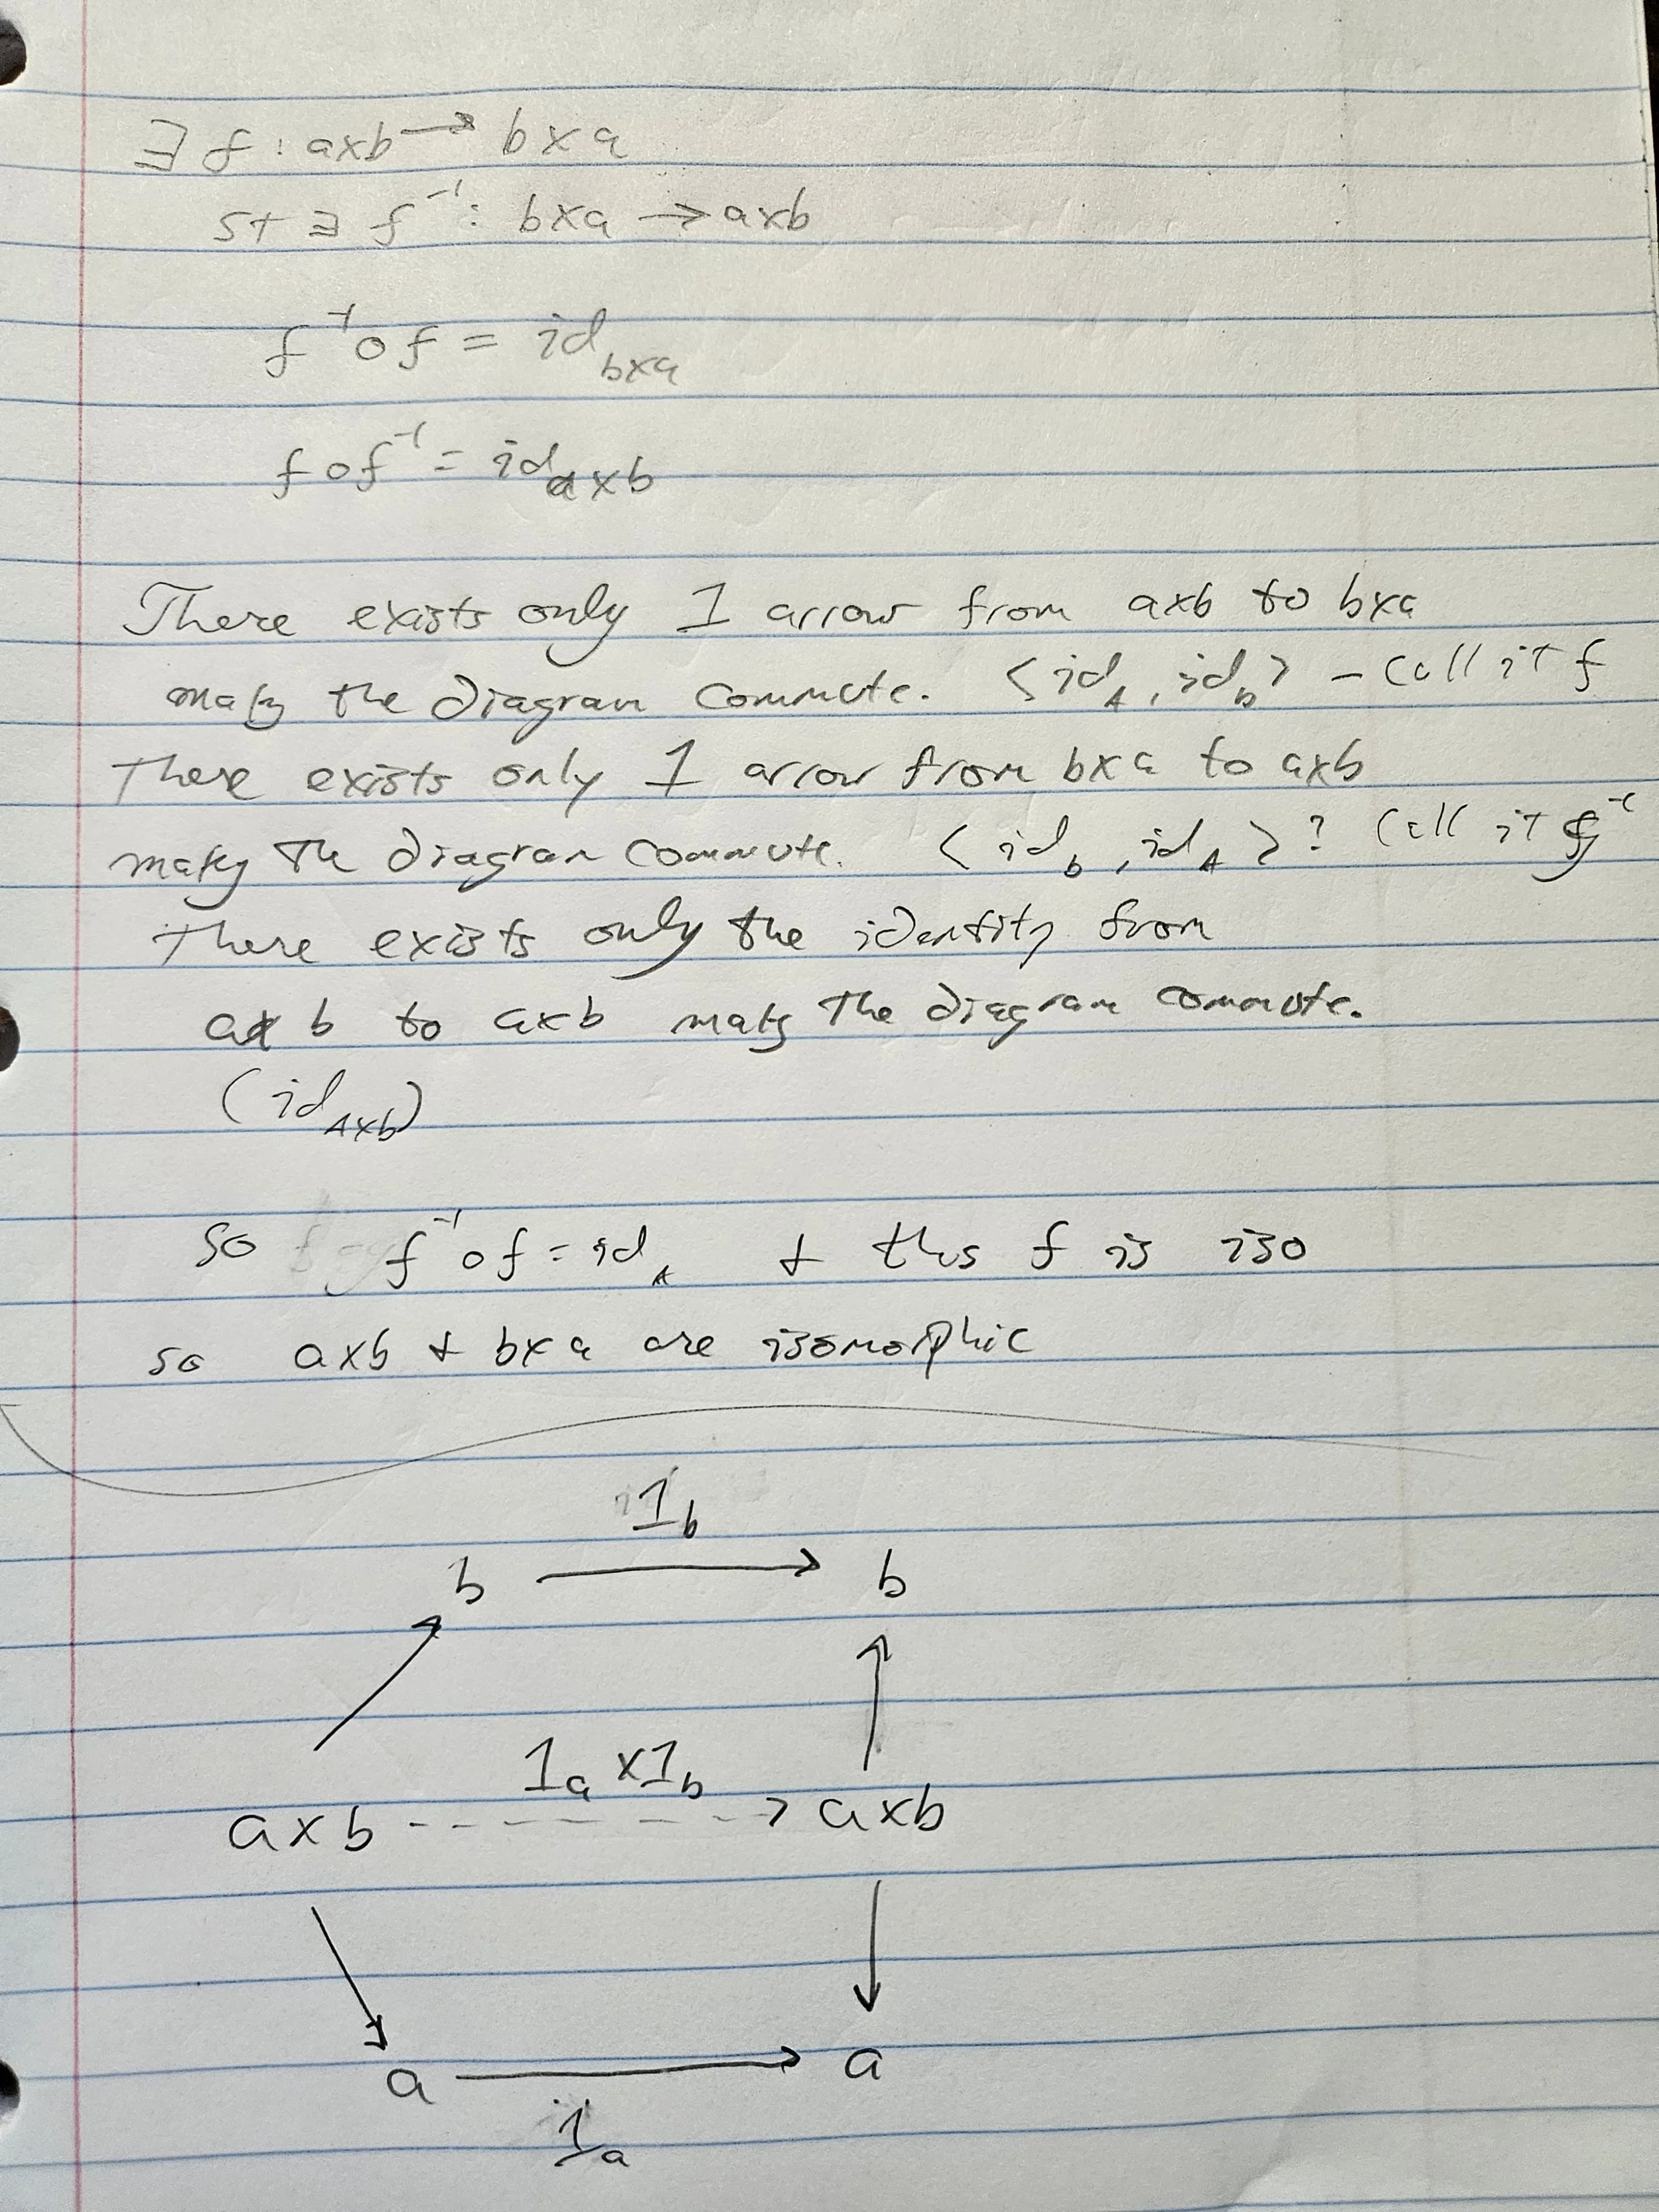 ∃ f : a×b → b×a
st ∃ f⁻¹ : b×a → a×b
f⁻¹ ∘ f = id_{b×a}
f ∘ f⁻¹ = id_{a×b}
There exists only 1 arrow from a×b to b×a
making the diagram commute. <id_A, id_b> – call it f
There exists only 1 arrow from b×a to a×b
making the diagram commute. <id_b, id_A>? Call it f⁻¹
There exists only the identity from
a×b to a×b making the diagram commute.
(id_{A×b})
so f⁻¹ ∘ f = id_A & thus f is iso
so a×b & b×a are isomorphic
1_b
b → b
1_a × 1_b
a×b → a×b
a → a
1_a